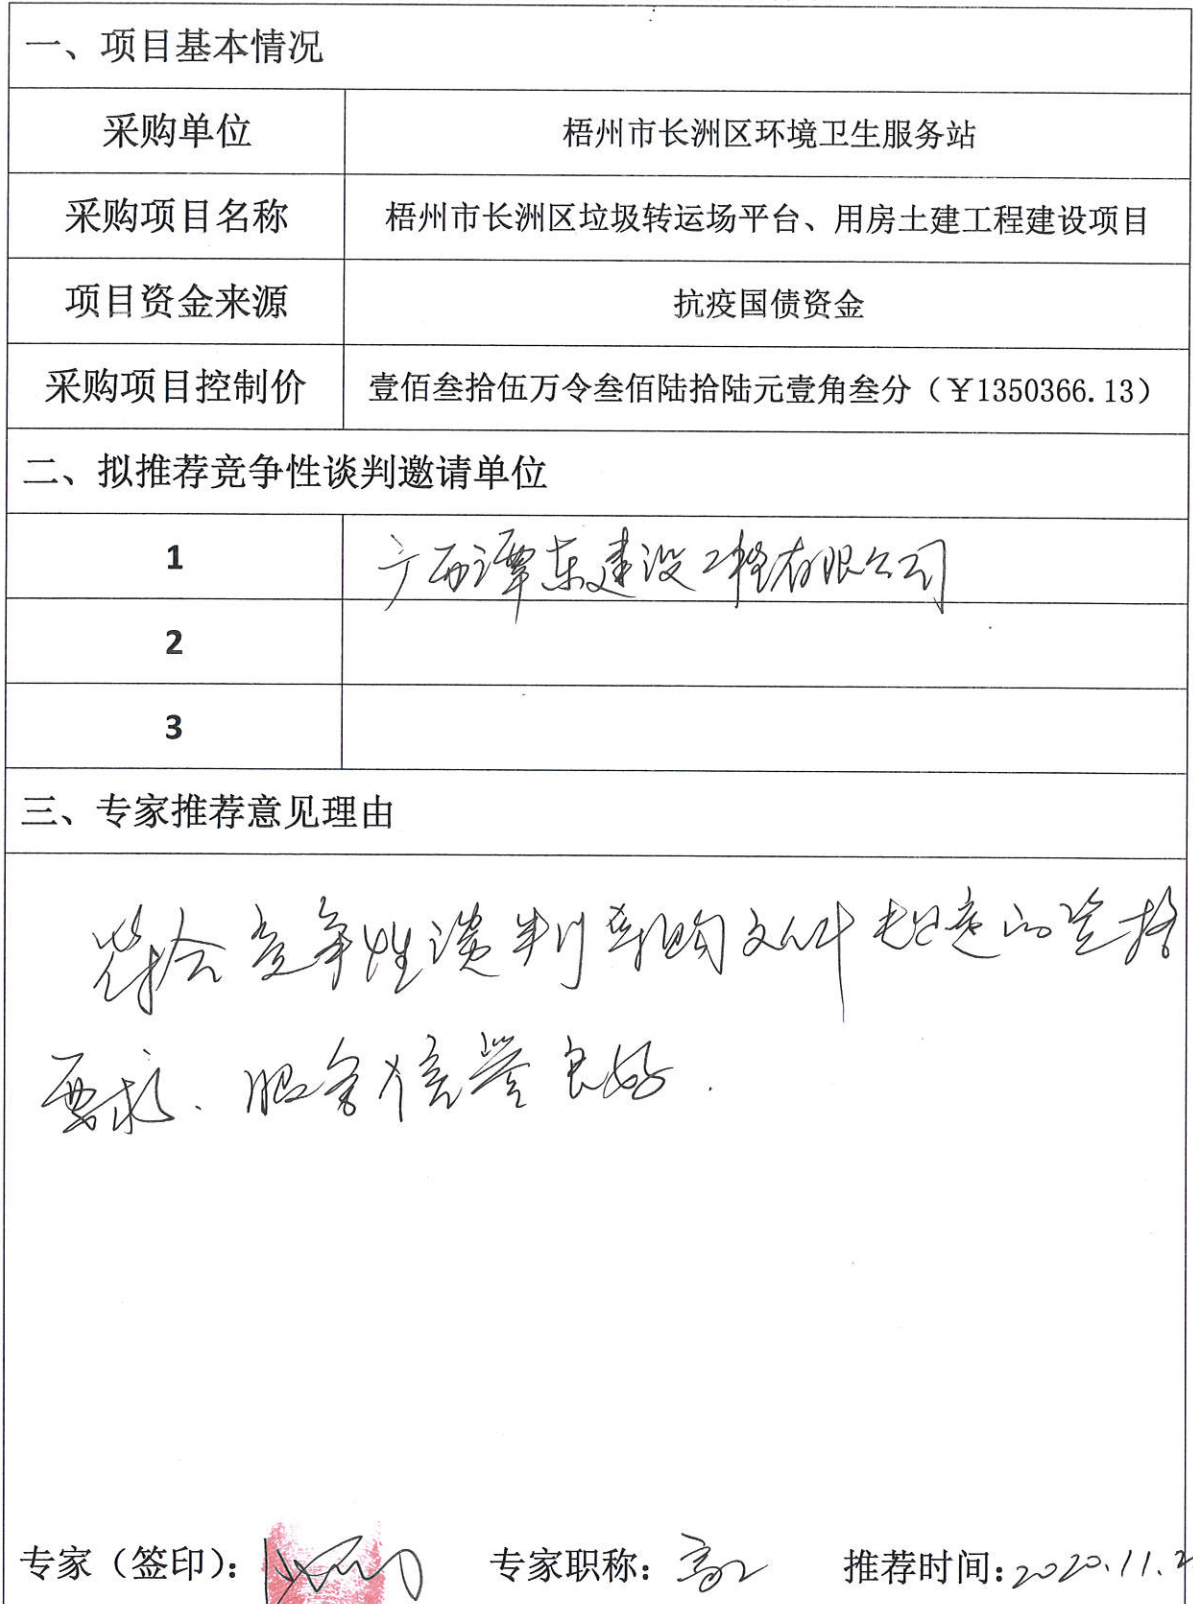 一、项目基本情况
采购单位 梧州市长洲区环境卫生服务站
采购项目名称 梧州市长洲区垃圾转运场平台、用房土建工程建设项目
项目资金来源 抗疫国债资金
采购项目控制价 壹佰叁拾伍万令叁佰陆拾陆元壹角叁分（￥1350366.13）
二、拟推荐竞争性谈判邀请单位
1 广西谭东建设工程有限公司
2
3
三、专家推荐意见理由
符合竞争性谈判采购文件规定的资格
要求、服务信誉良好.
专家（签印）： 专家职称：高工 推荐时间：2020.11.2